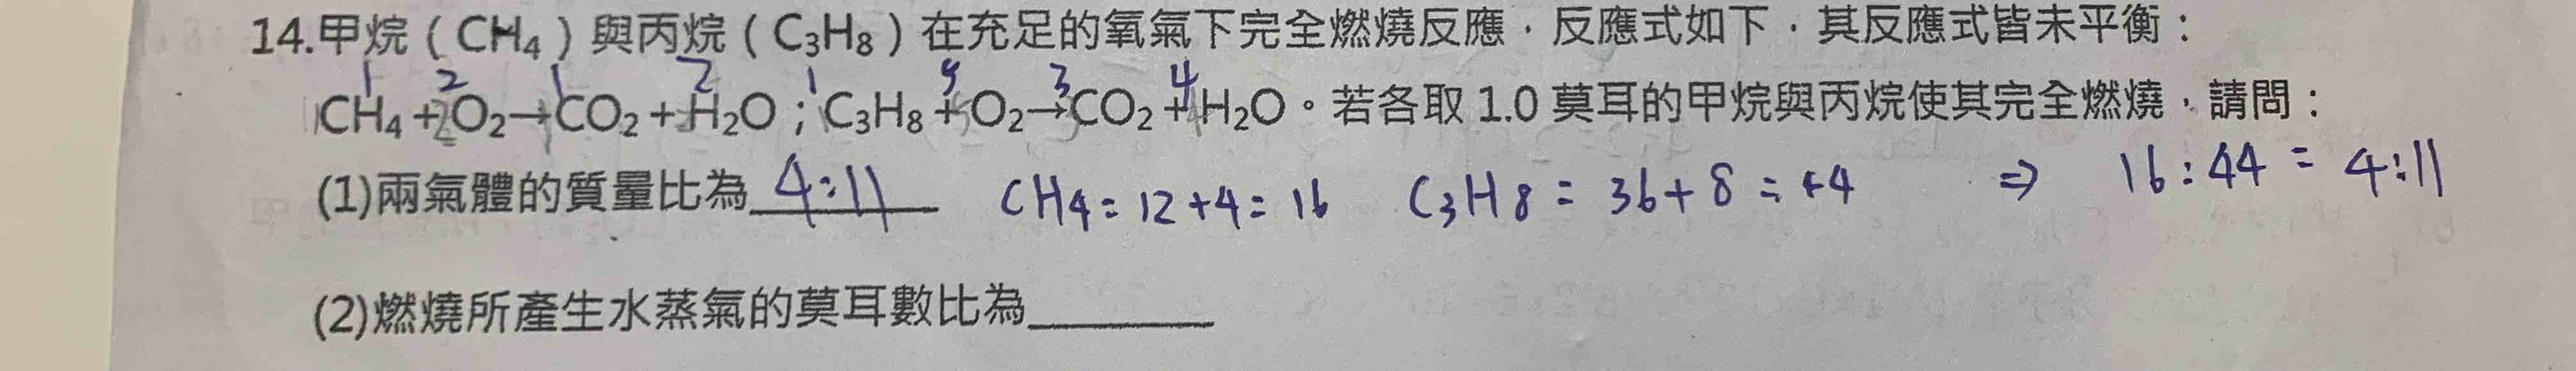 14.甲烷（CH₄）與丙烷（C₃H₈）在充足的氧氣下完全燃燒反應，反應式如下，其反應式皆未平衡：
1 2 1 2 1 5 3 4
CH₄+O₂→CO₂+H₂O；C₃H₈+O₂→CO₂+H₂O。若各取 1.0 莫耳的甲烷與丙烷使其完全燃燒，請問：
(1)兩氣體的質量比為 4:11 CH4=12+4=16 C3H8=36+8=44 ⇒ 16:44=4:11
(2)燃燒所產生水蒸氣的莫耳數比為________